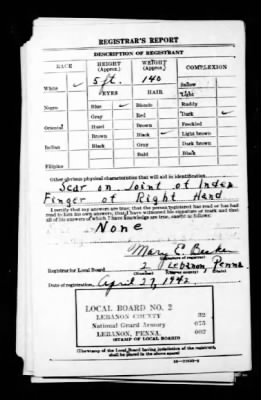 REGISTRAR'S REPORT
DESCRIPTION OF REGISTRANT
RACE HEIGHT (Approx.) WEIGHT (Approx.) COMPLEXION
White ✓ 5 ft. 140 Sallow
EYES HAIR Light
Negro Blue ✓ Blonde Ruddy
Gray Red Dark ✓
Oriental Hazel Brown Freckled
Brown Black ✓ Light brown
Indian Black Gray Dark brown
Bald Black
Filipino
Other obvious physical characteristics that will aid in identification
Scar on Joint of Index
Finger of Right Hand
I certify that my answers are true; that the person registered has read or has had
read to him his own answers; that I have witnessed his signature or mark and that
all of his answers of which I have knowledge are true, except as follows:
None
Mary E.
(Signature of registrar)
Registrar for Local Board 2 Lebanon, Penna.
(Number) (City or county) (State)
Date of registration April 27, 1942
LOCAL BOARD NO. 2 32
LEBANON COUNTY 075
National Guard Armory 002
LEBANON, PENNA.
(STAMP OF LOCAL BOARD)
(The stamp of the Local Board having jurisdiction of the registrant
shall be placed in the above space)